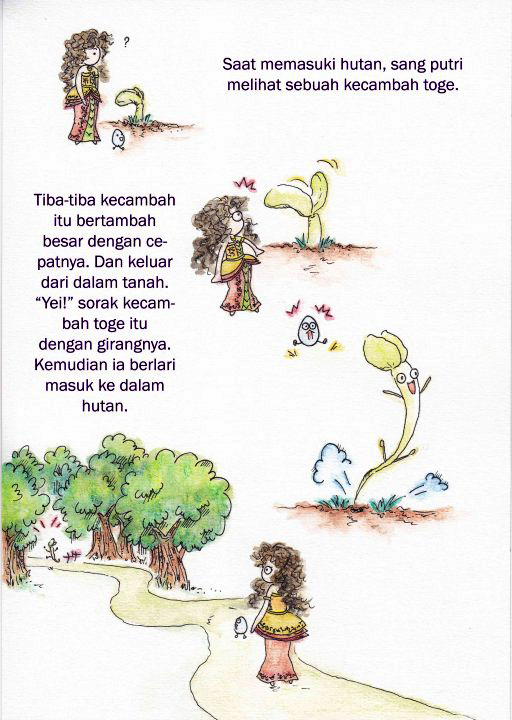 ?
Saat memasuki hutan, sang putri
melihat sebuah kecambah toge.
Tiba-tiba kecambah
itu bertambah
besar dengan ce-
patnya. Dan keluar
dari dalam tanah.
“Yei!” sorak kecam-
bah toge itu
dengan girangnya.
Kemudian ia berlari
masuk ke dalam
hutan.